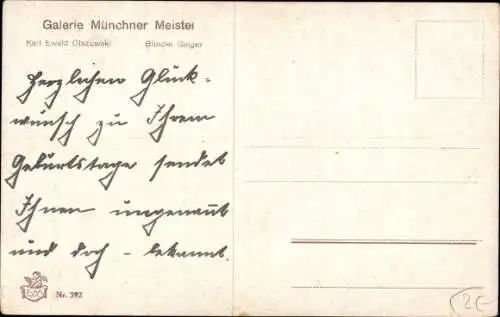 Galerie Münchner Meister
Karl Ewald Olszewski Blinder Geiger
Herzlichen Glück-
wunsch zu Ihrem
Geburtstage sendet
Ihnen ungenannt
und doch - bekannt.
Nr. 392
2.-